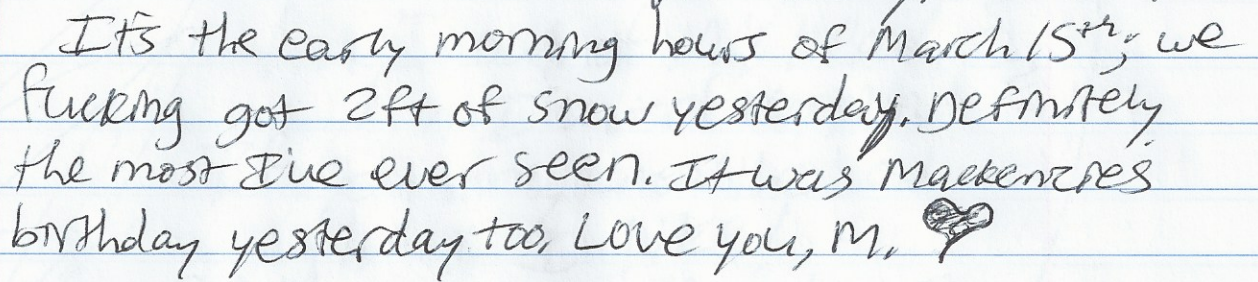 It's the early morning hours of March 15th; we
fucking got 2ft of snow yesterday. Definitely
the most I've ever seen. It was Mackenzies
birthday yesterday too. Love you, M.